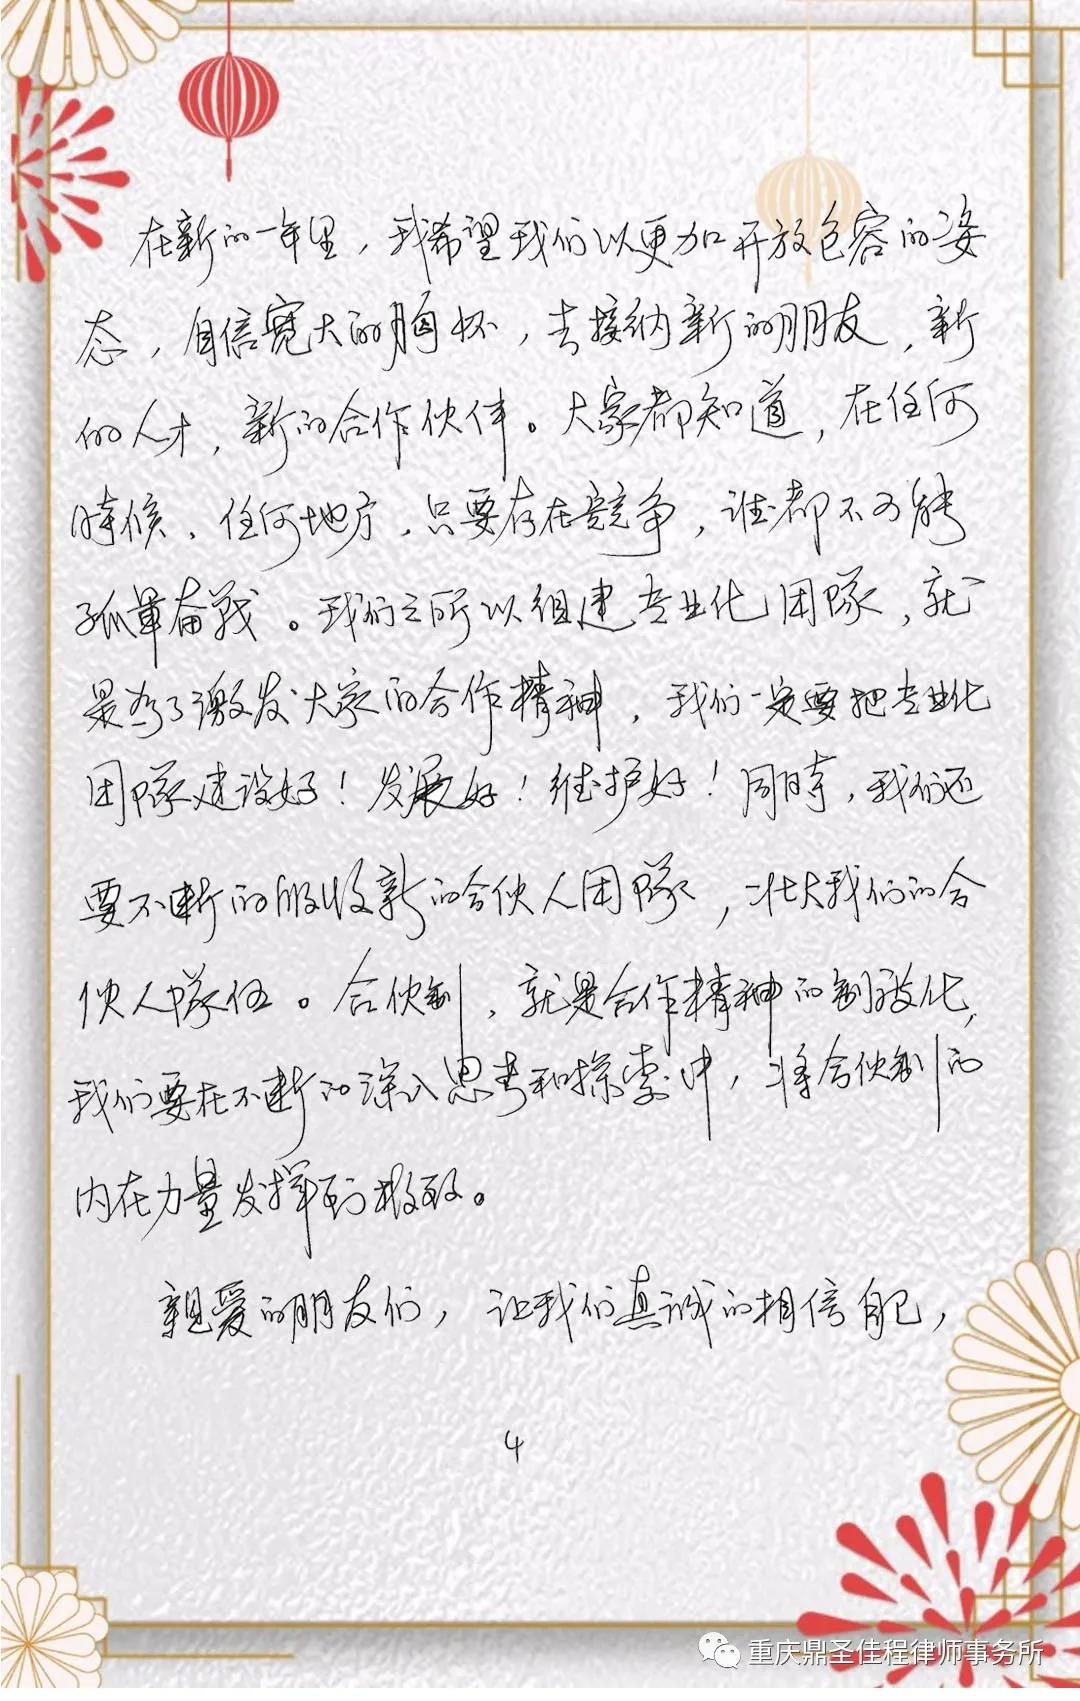 在新的一年里，我希望我们以更加开放包容的姿
态，自信宽大的胸怀，去接纳新的朋友，新
的人才，新的合作伙伴。大家都知道，在任何
时候、任何地方，只要存在竞争，谁都不可能
孤军奋战。我们之所以组建专业化团队，就
是为了激发大家的合作精神，我们一定要把专业化
团队建设好！发展好！维护好！同时，我们还
要不断的吸收新的合伙人团队，壮大我们的合
伙人队伍。合伙制，就是合作精神的制度化，
我们要在不断的深入思考和探索中，将合伙制的
内在力量发挥到极致。
亲爱的朋友们，让我们真诚的相信自己，
4
重庆鼎圣佳程律师事务所